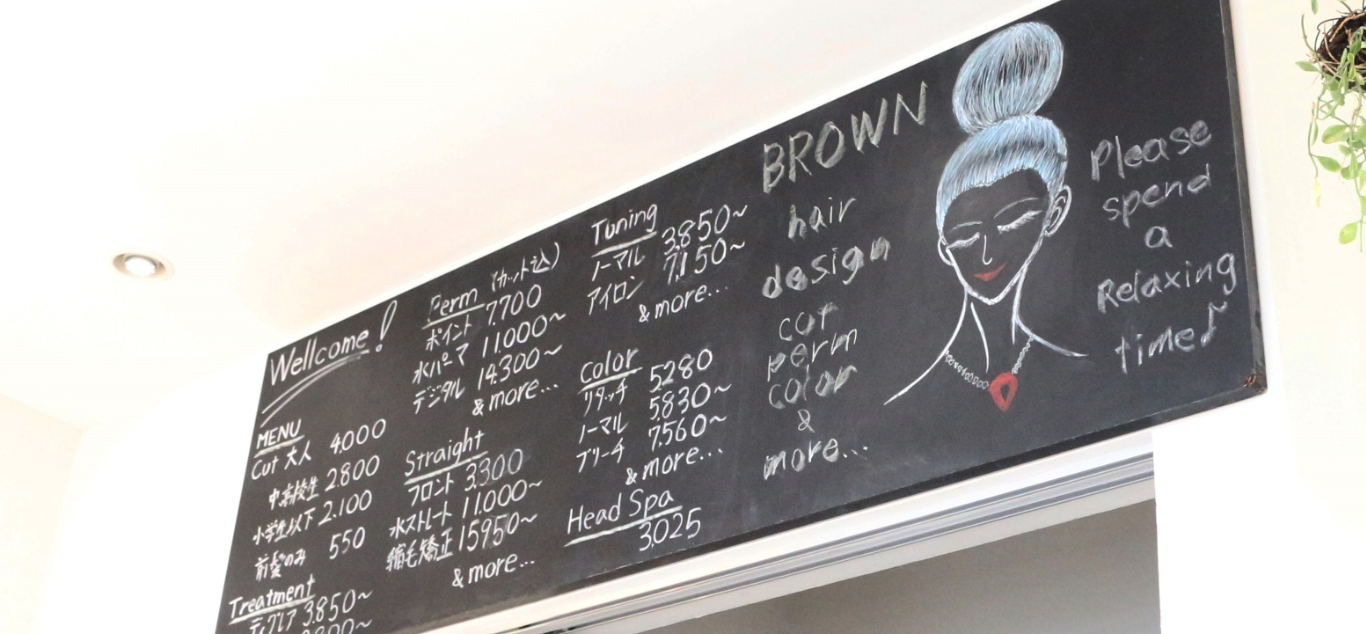 Wellcome!
MENU
Cut 大人 4.000
中高校生 2.800
小学生以下 2.100
前髪のみ 550
Treatment
3.850~
Perm (カット込)
ポイント 7.700
水パーマ 11.000~
デジタル 14.300~
& more...
Straight
フロント 3.300
水ストレート 11.000~
縮毛矯正 15950~
& more...
Tuning
ノーマル 3.850~
アイロン 7.150~
& more...
Color
リタッチ 5280
ノーマル 5.830~
ブリーチ 7.560~
& more...
Head Spa
3.025
BROWN
hair
design
cut
perm
color
&
more...
Please
spend
a
Relaxing
time♪